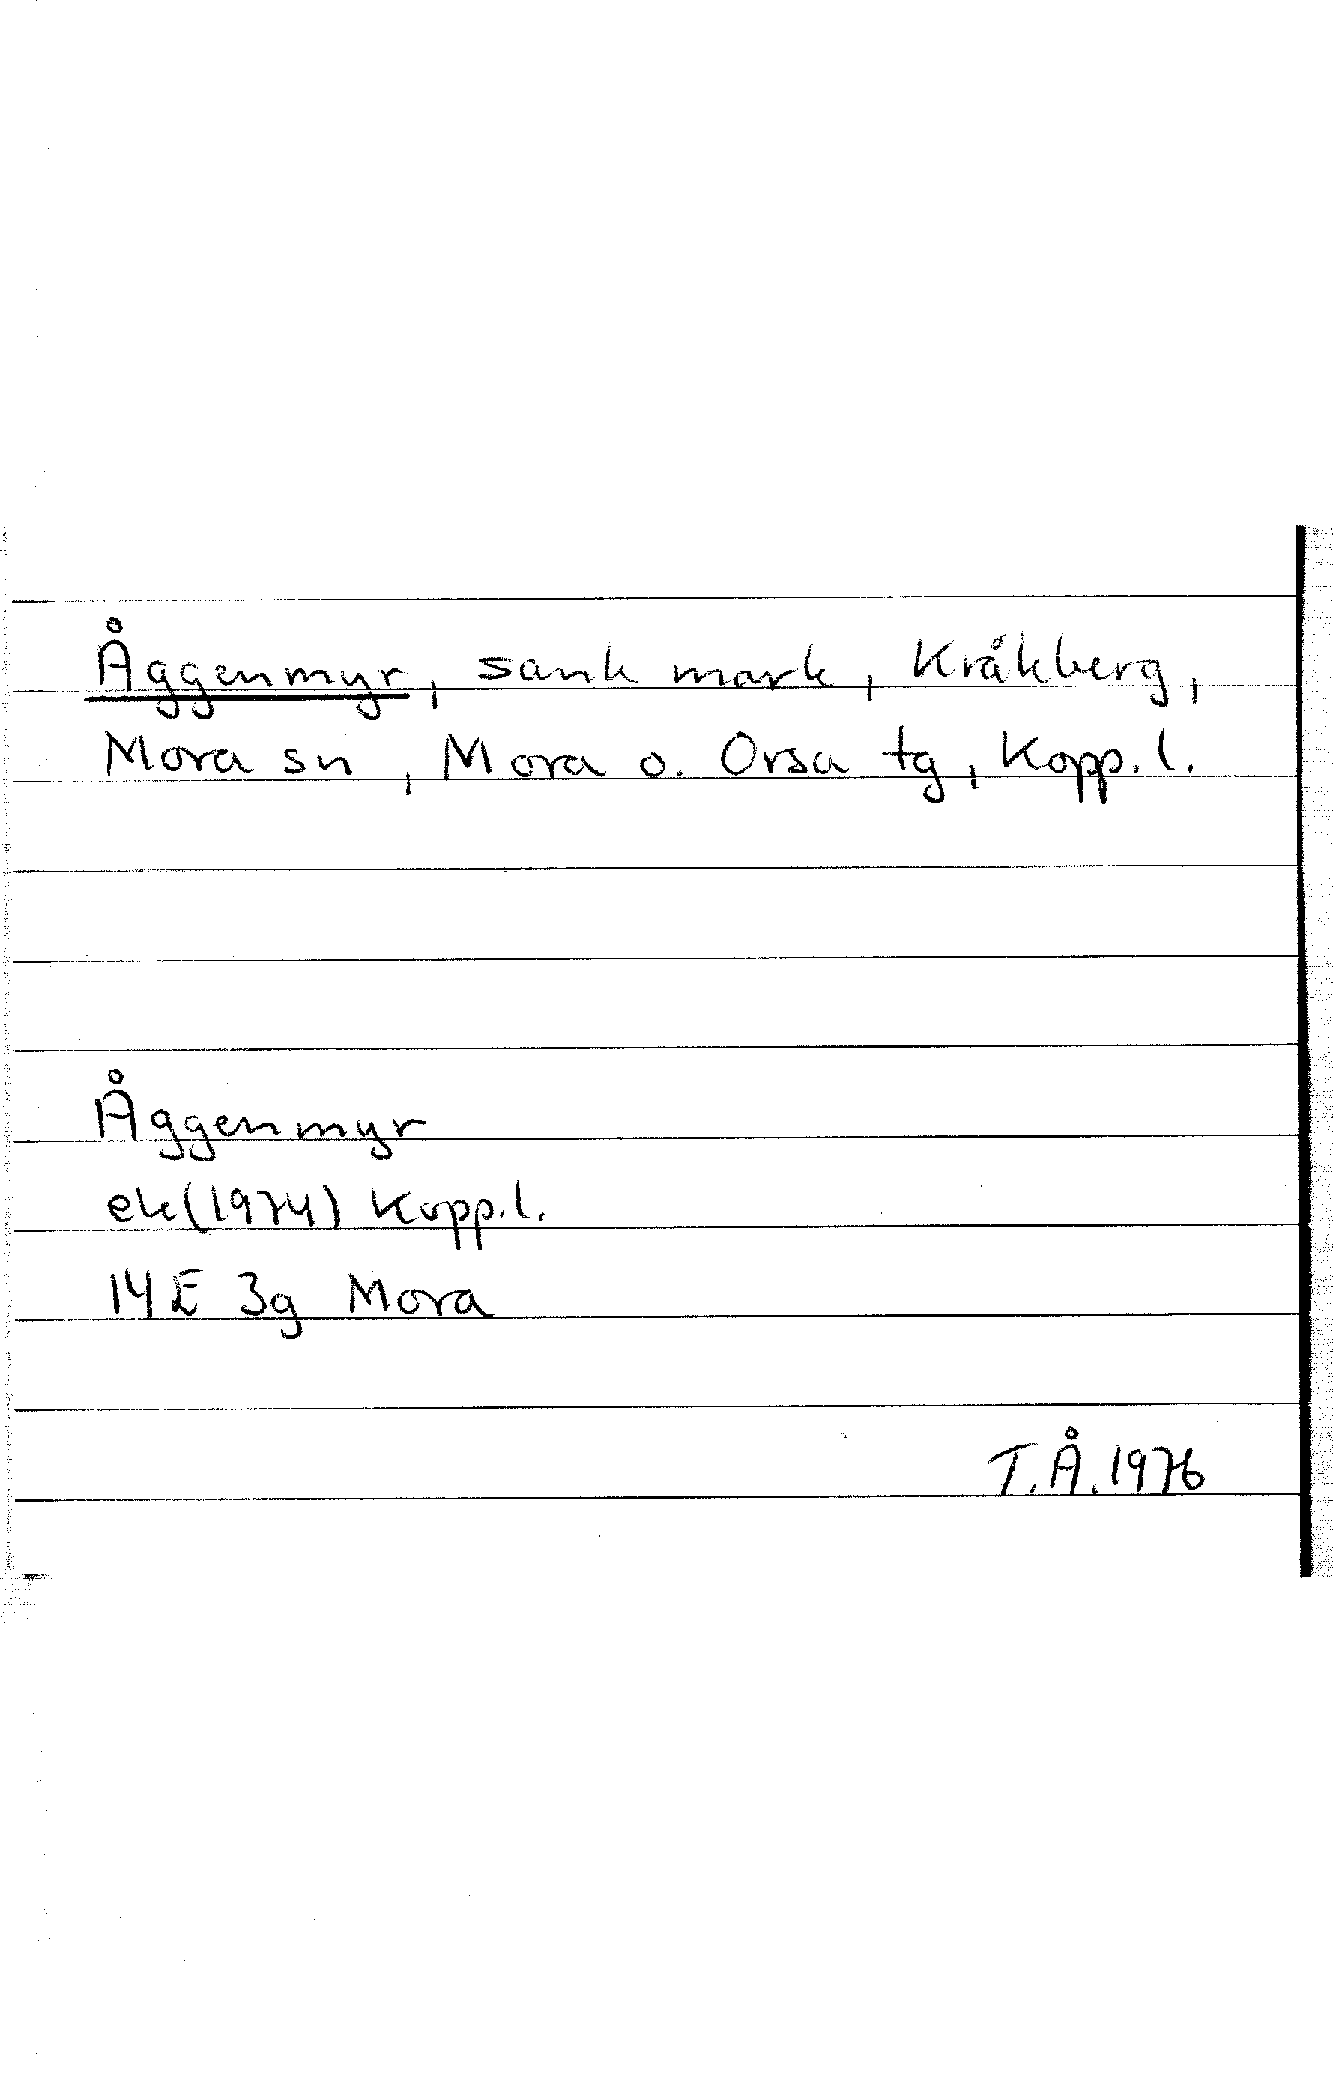 Åggenmyr, sank mark, Kråkberg,
Mora sn, Mora o. Orsa tg, Kopp. l.
Åggenmyr
ek(1974) Kopp. l.
14E 3g Mora
T.Å. 1976